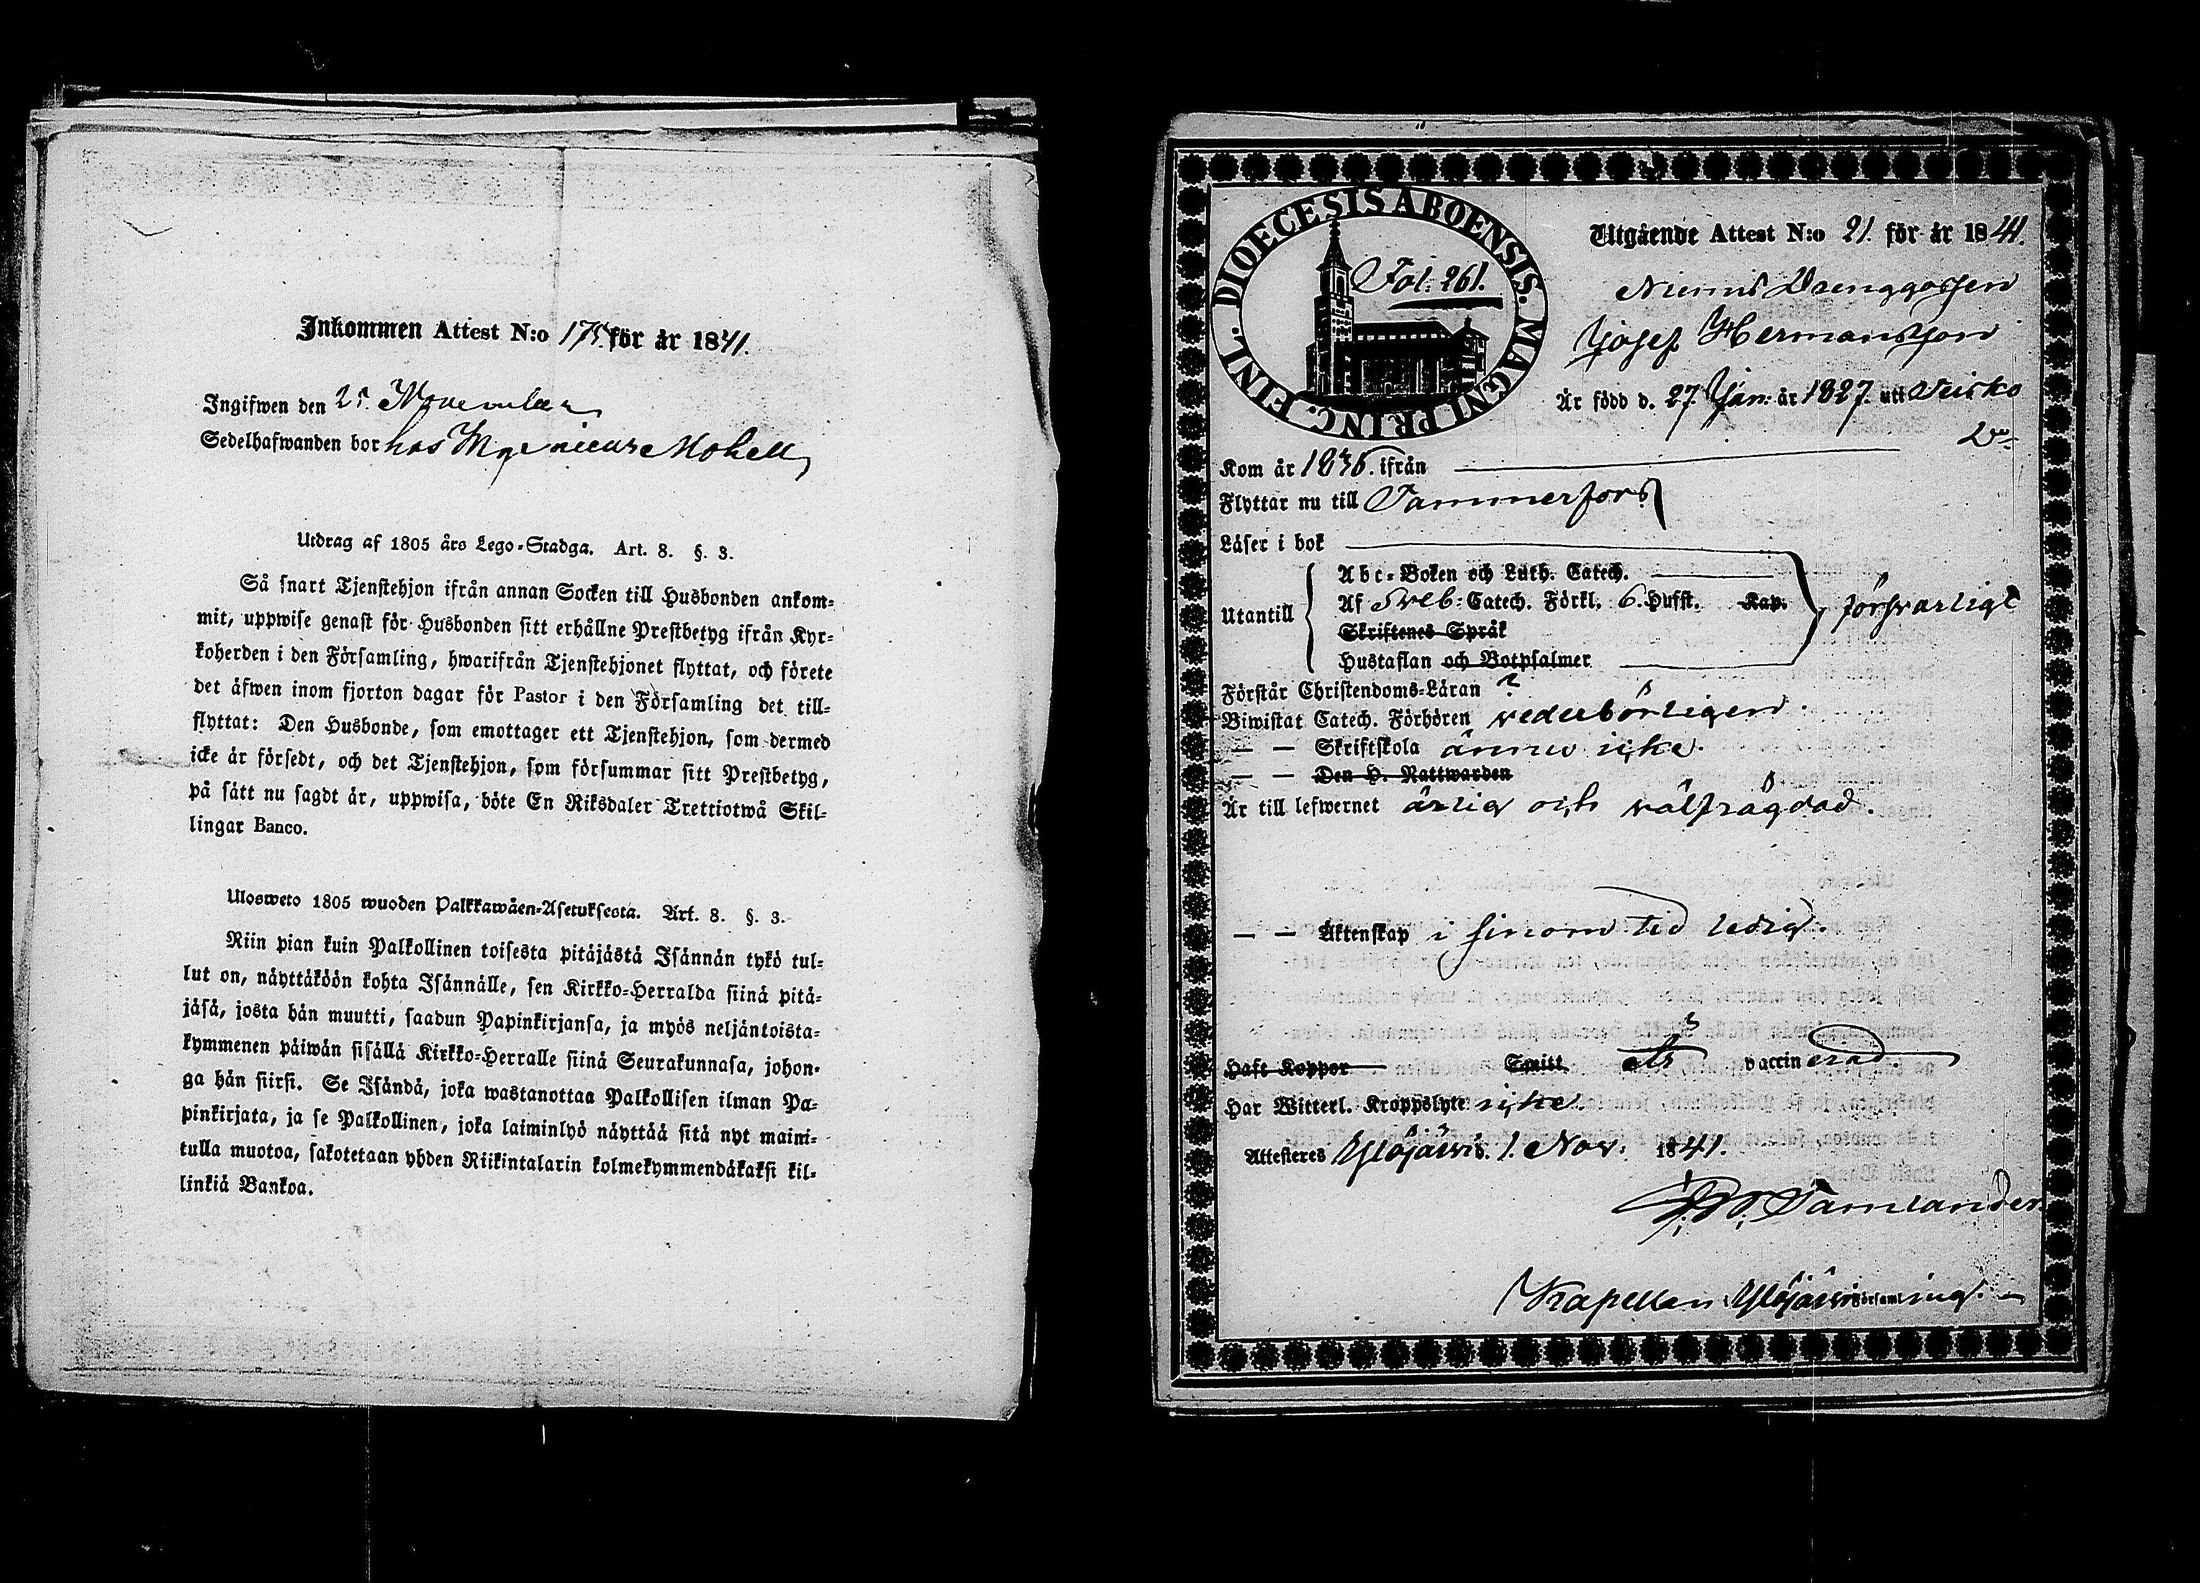 Inkommen Attest N:o 175. för år 1841.
Ingifwen den 25 November
Sedelhafwanden bor hos Ingenieur Mohell
Utdrag af 1805 års Lego-Stadga. Art. 8. §. 3.
Så snart Tjenstehjon ifrån annan Socken till Husbonden ankom-
mit, uppwise genast för Husbonden sitt erhållne Prestbetyg ifrån Kyr-
koherden i den Församling, hwarifrån Tjenstehjonet flyttat, och förete
det äfwen inom fjorton dagar för Pastor i den Församling det till-
flyttat: Den Husbonde, som emottager ett Tjenstehjon, som dermed
icke är försedt, och det Tjenstehjon, som försummar sitt Prestbetyg,
på sätt nu sagdt är, uppwisa, böte En Riksdaler Trettiotwå Skil-
lingar Banco.
Ulosweto 1805 wuoden Palkkawäen-Asetuksesta. Art. 8. §. 3.
Niin pian kuin Palkollinen toisesta pitäjästä Isännän tykö tul-
lut on, näyttäköön kohta Isännälle, sen Kirkko-Herralda siinä pitä-
jäsä, josta hän muutti, saadun Papinkirjansa, ja myös neljäntoista-
kymmenen päiwän sisällä Kirkko-Herralle siinä Seurakunnasa, johon-
ga hän siirsi. Se Isändä, joka wastanottaa Palkollisen ilman Pa-
pinkirjata, ja se Palkollinen, joka laiminlyö näyttää sitä nyt maini-
tulla muotoa, sakotetaan yhden Riikintalarin kolmekymmendäkaksi kil-
linkiä Bankoa.
DIOECESIS ABOENSIS. MAGNI PRINC. FINL.
Fol. 261.
Utgående Attest N:o 21. för år 1841.
Niemis Drenggossen
Josef Hermansson
Är född d. 27. Jan: år 1827. uti
Kom år 1836. ifrån
Flyttar nu till Tammerfors
Läser i bok
Utantill
Abc-Boken och Luth. Catech.
Af Sveb: Catech. Förkl. 6. Hufst. Kap. försvarligt
Skriftenes Språk
Hustaflan och Botpsalmer
Förstår Christendoms-Läran ?
Biwistat Catech. Förhören vederbörligen.
— — Skriftskola ännu icke.
— — Den H. Nattwarden
Är till lefwernet ärlig och välfrägdad.
— — Äktenskap i sinom tid ledig.
Haft Koppor Smitt är vaccinerad
Har Witterl. Kroppslyte icke.
Attesteras Ylöjärvi. 1. Nov. 1841.
Tamlander
Kapellan i Ylöjärvi Församling.